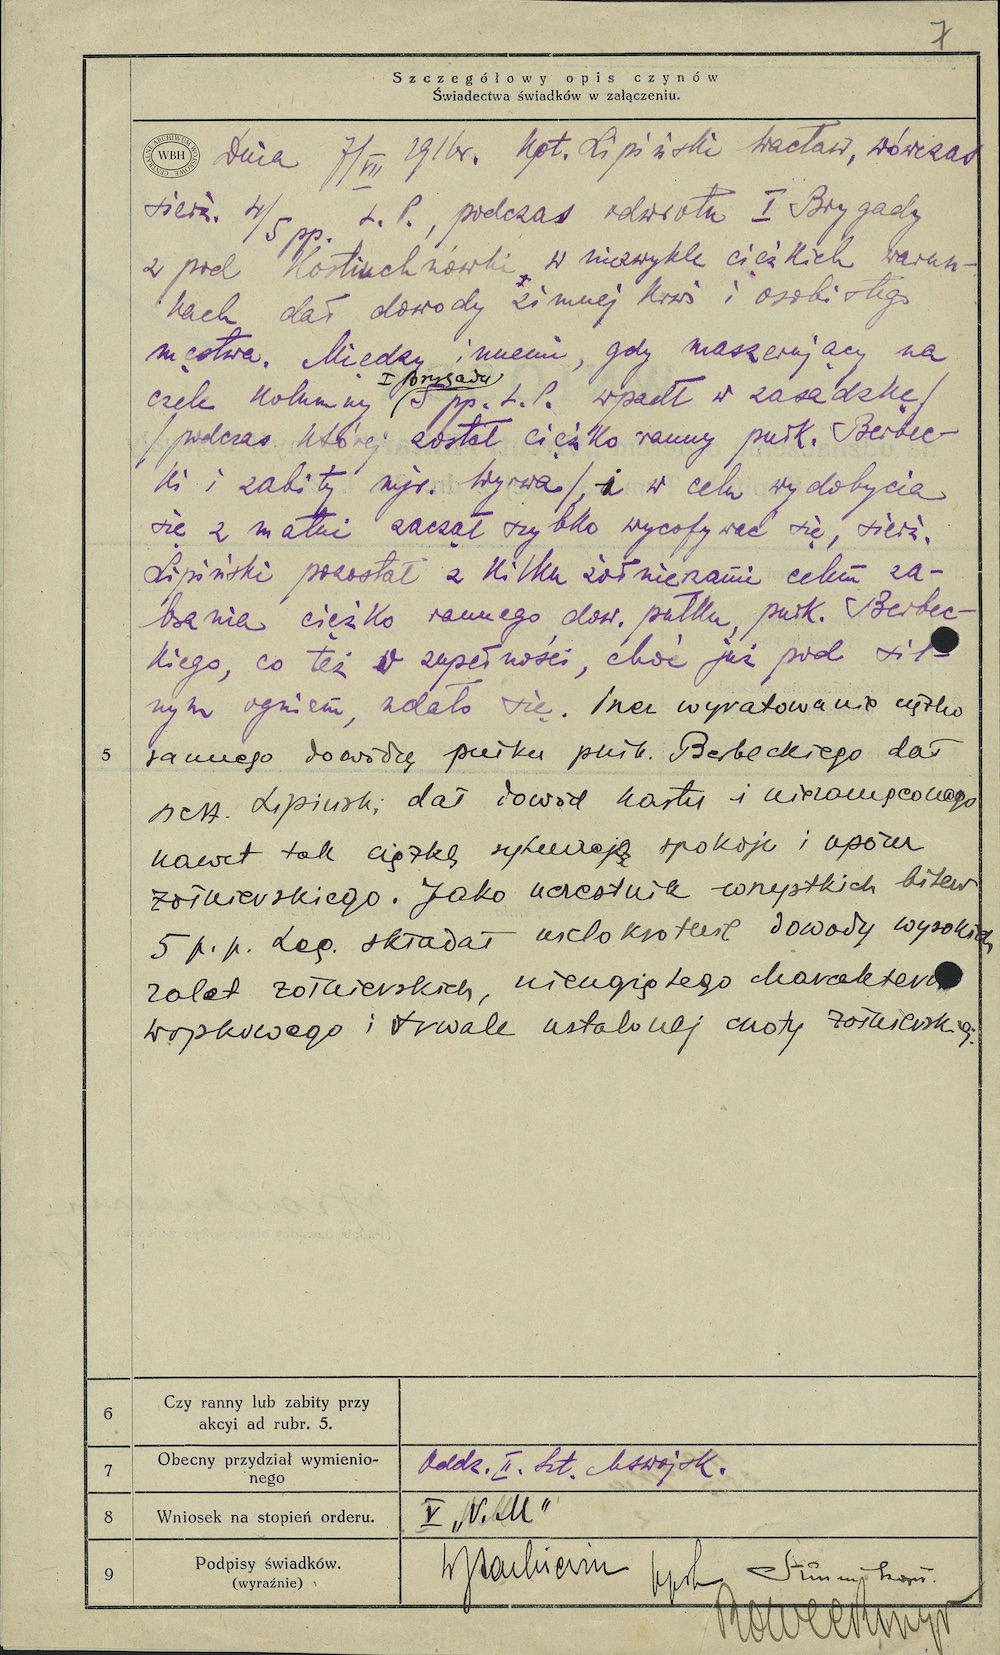 7
Szczegółowy opis czynów
Świadectwa świadków w załączeniu.
CENTRALNE ARCHIWUM WOJSKOWE
WBH
Dnia 7/VII 1916r. kpt. Lipiński Wacław, wówczas
sierż. 4/5 pp. L. P., podczas odwrotu I Brygady
z pod Kostiuchnówki, w niezwykle ciężkich warun-
kach dał dowody zimnej krwi i osobistego
męstwa. Między innemi, gdy maszerujący na
I Brygady
czele kolumny 5 pp. L. P. wpadł w zasadzkę/
/podczas której został ciężko ranny pułk. Berbec-
ki i zabity mjr. Wyrwa/, i w celu wydobycia
się z matni zaczął szybko wycofywać się, sierż.
Lipiński pozostał z kilku żołnierzami celem za-
brania ciężko rannego dow. pułku, pułk. Berbec-
kiego, co też w zupełności, choć już pod sil-
nym ogniem, udało się. Przez wyratowanie ciężko
5
rannego dowódcy pułku pułk. Berbeckiego dał
sierż. Lipiński dał dowód hartu i niezamąconego
nawet tak ciężką sytuacją spokoju i uporu
żołnierskiego. Jako uczestnik wszystkich bitew
5 p. p. Leg. składał wielokrotnie dowody wysokich
zalet żołnierskich, nieugiętego charakteru
wojskowego i trwale ustalonej cnoty żołnierskiej.
6
Czy ranny lub zabity przy
akcyi ad rubr. 5.
7
Obecny przydział wymienio-
nego
Oddz. II. Szt. M.s.wojsk.
8
Wniosek na stopień orderu.
V „V.M"
9
Podpisy świadków.
(wyraźnie)